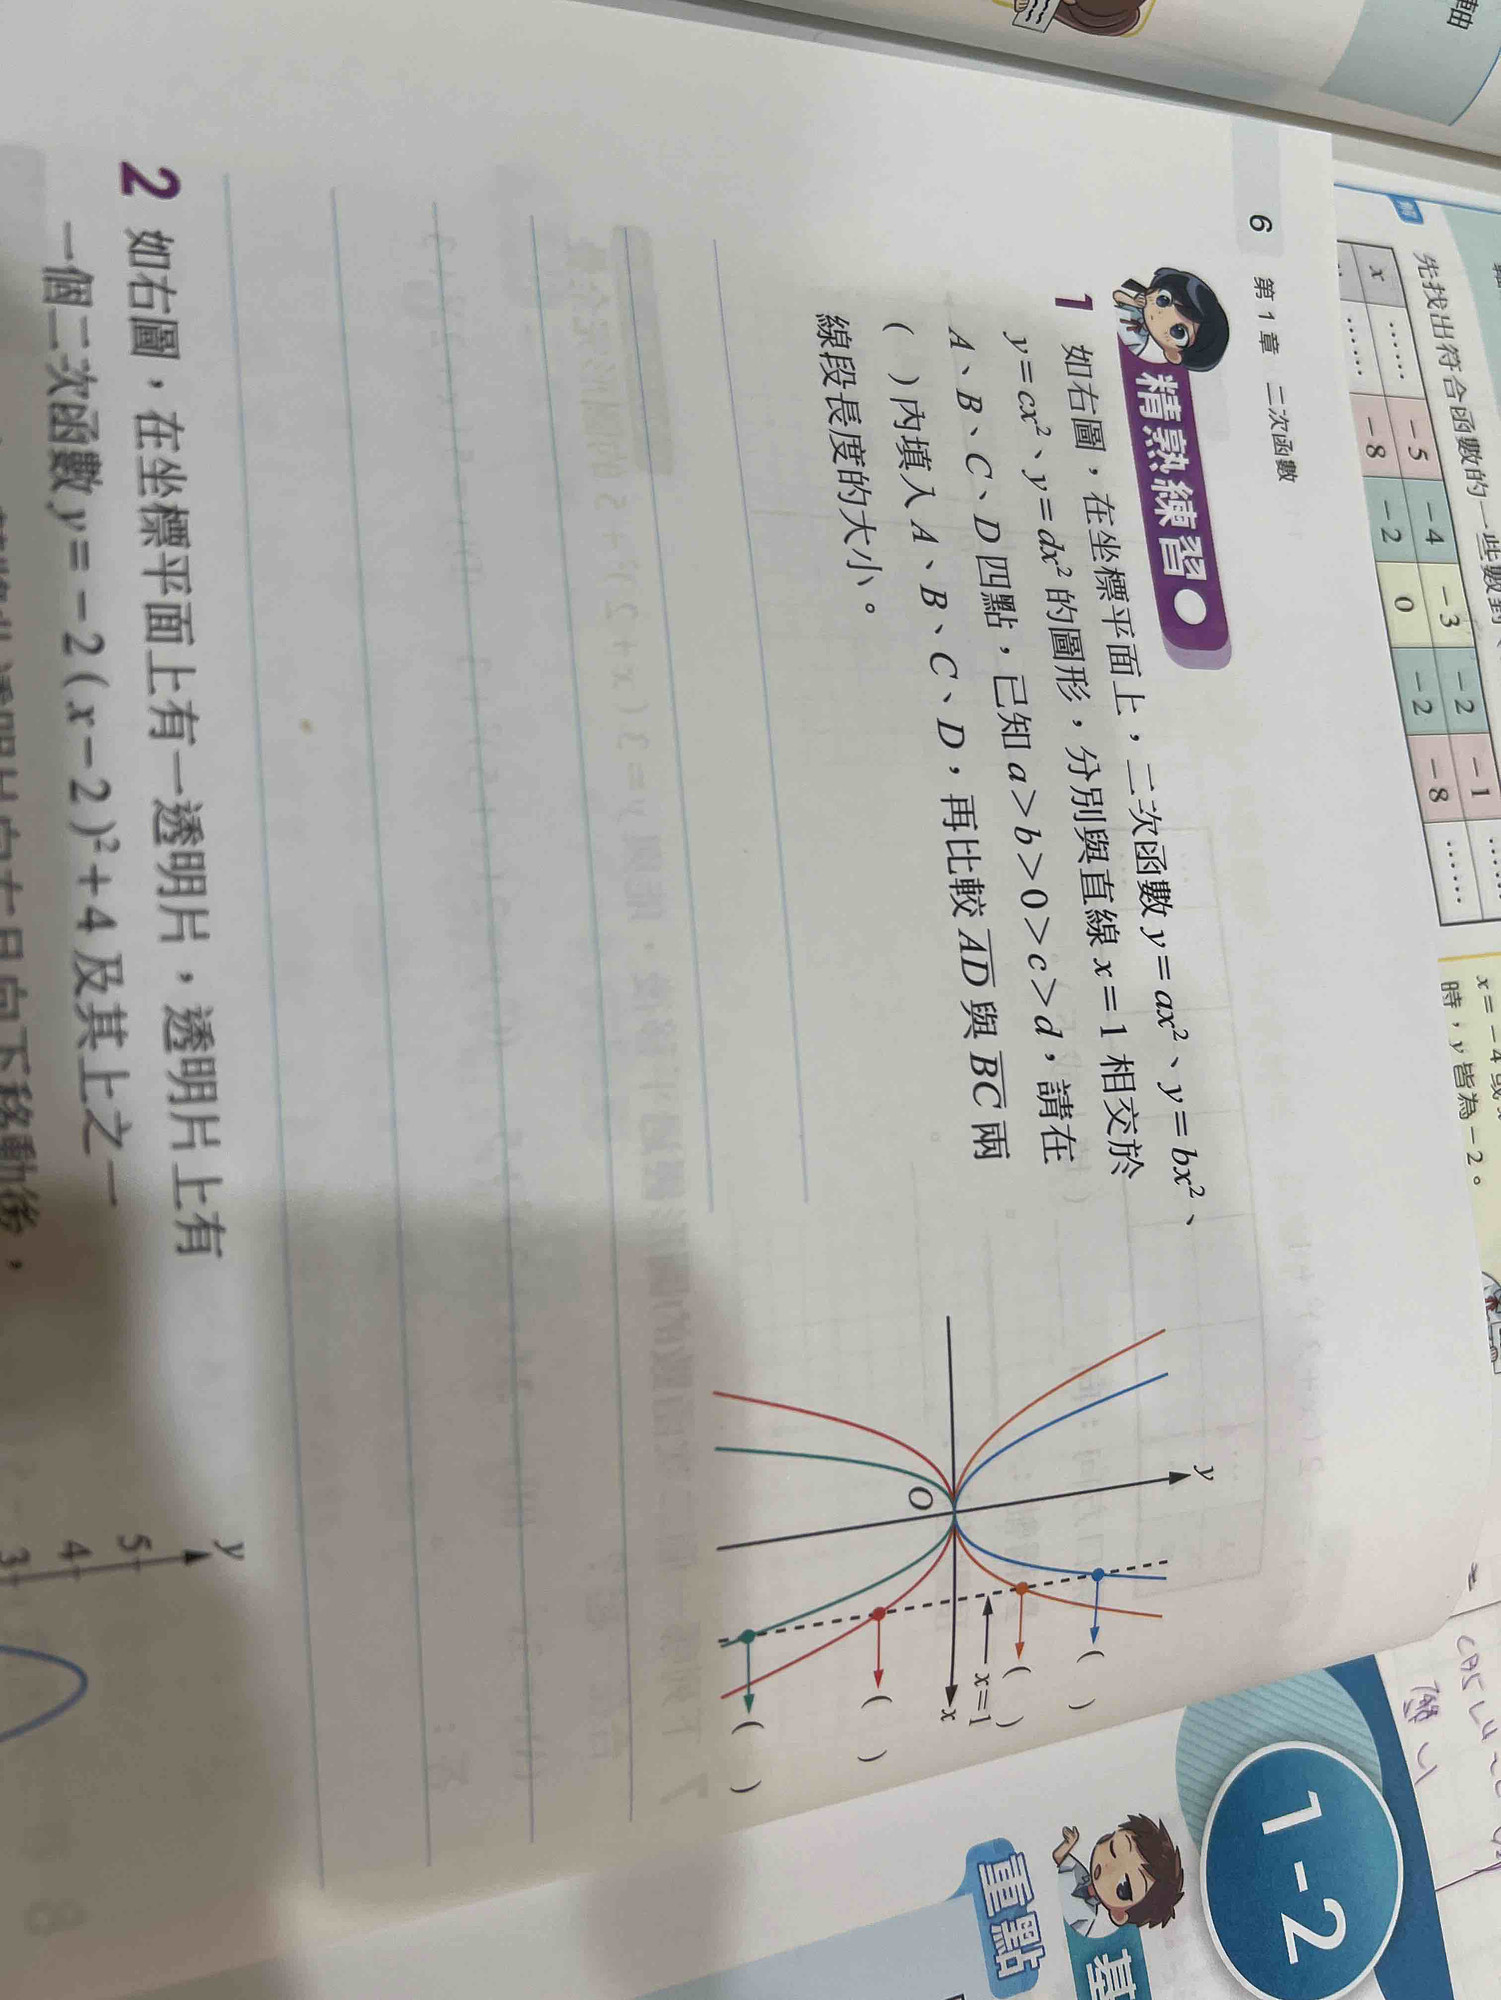 軸
先找出符合函數的一些數對
解
x …… -5 -4 -3 -2 -1 ……
-8 -2 0 -2 -8 ……
時，y 皆為-2。
6 第1章 二次函數
精熟練習
1 如右圖，在坐標平面上，二次函數 y=ax²、y=bx²、
y=cx²、y=dx² 的圖形，分別與直線 x=1 相交於
A、B、C、D四點，已知 a>b>0>c>d，請在
( )內填入 A、B、C、D，再比較 AD 與 BC 兩
線段長度的大小。
y
( )
( )
x=1
x
O
( )
( )
2 如右圖，在坐標平面上有一透明片，透明片上有
一個二次函數 y=-2(x-2)²+4 及其上之一
向右且向下移動後，
y
5
4
3
1-2
重點
基
8